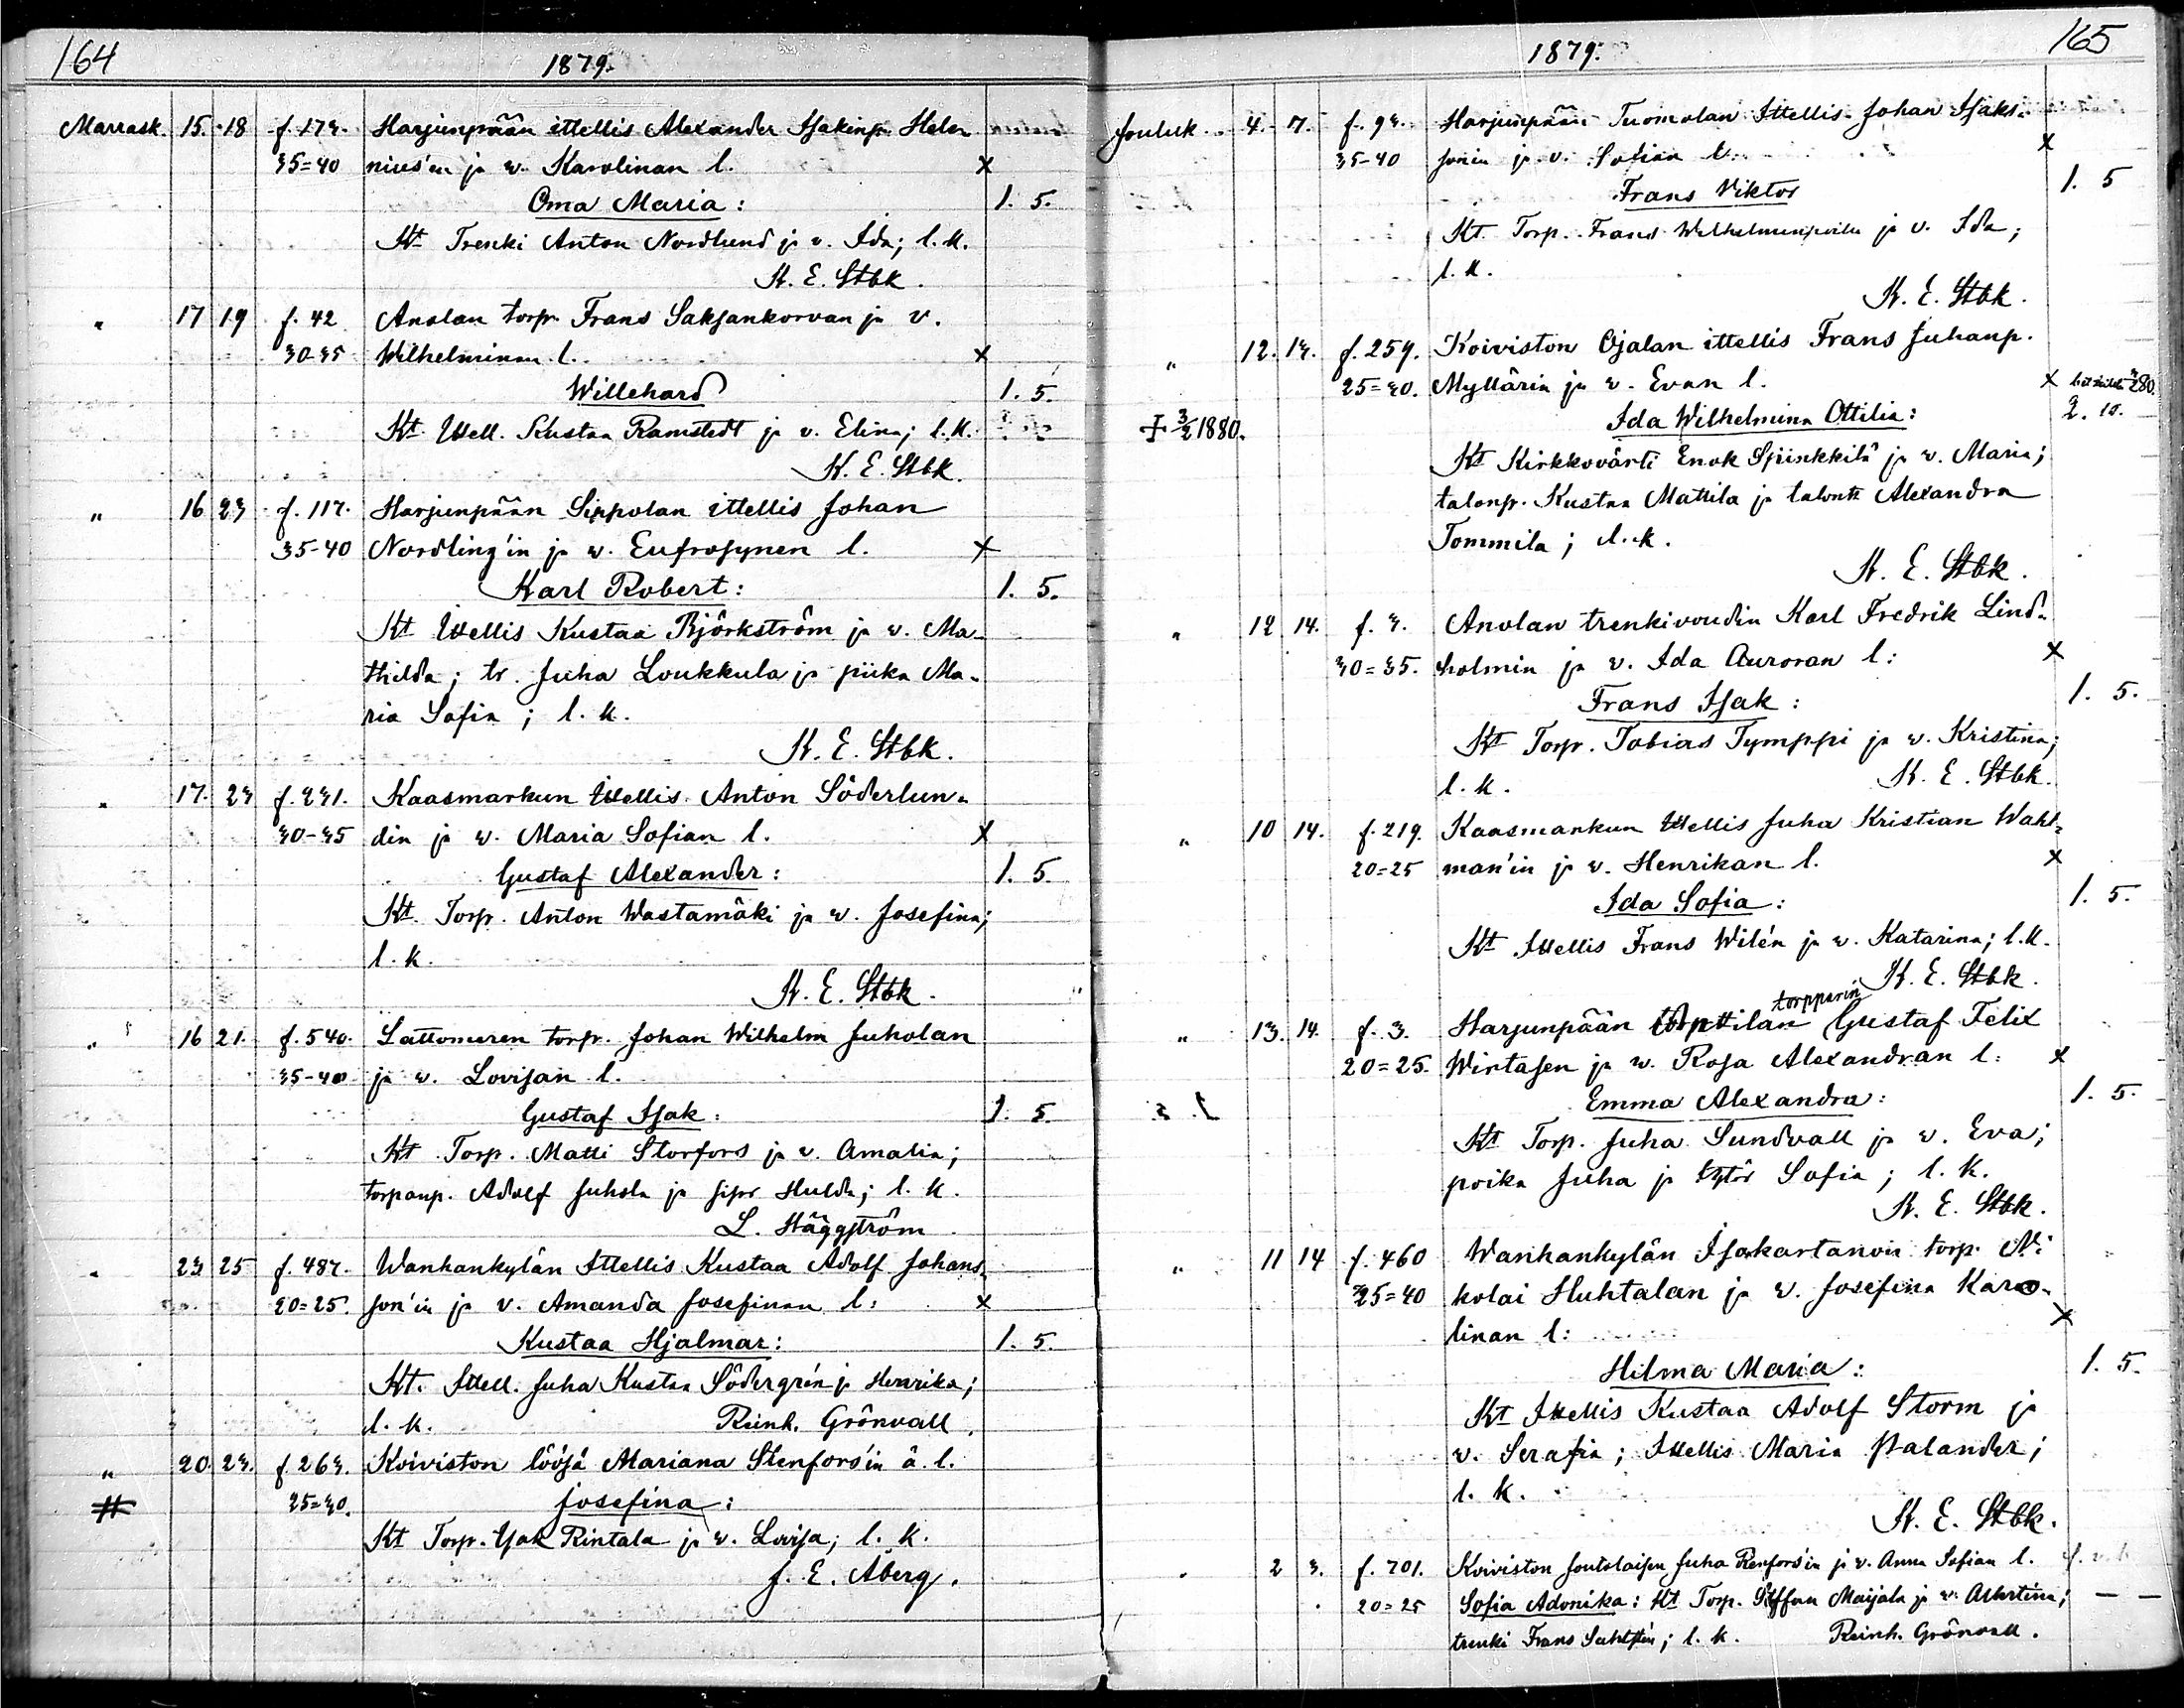 164
1879.
Marrask. 15. 18 f. 173. Harjunpään ittellis Alexander Isakinp. Hele-
35=40 nius'en ja v. Karolinan l. x
Oma Maria: 1. 5.
Kt Trenki Anton Nordlund ja v. Ida; l. k.
K. E. Stbk.
" 17 19 f. 42 Anolan torp. Frans Saksankorvan ja v.
30-35 Wilhelminan l. x
Willehard 1. 5.
Kt Ittell. Kustaa Ramstedt ja v. Elina; l. k.
K. E. Stbk.
" 16 23 f. 117. Harjunpään Sippolan ittellis Johan
35-40 Nordling'in ja v. Eufrosynen l. x
Karl Robert: 1. 5.
Kt Ittellis Kustaa Björkström ja v. Ma-
thilda; tr. Juha Loukkula ja piika Ma-
ria Sofia; l. k.
K. E. Stbk.
" 17. 23 f. 231. Kaasmarkun Ittellis Anton Söderlun-
30-35 din ja v. Maria Sofian l. x
Gustaf Alexander: 1. 5.
Kt. Torp. Anton Wastamäki ja v. Josefina;
l. k.
K. E. Stbk.
" 16 21. f. 540. Lattomeren torp. Johan Wilhelm Juholan
35-40 ja v. Lovisan l.
Gustaf Isak: 1. 5.
Kt Torp. Matti Storfors ja v. Amalia;
torpanp. Adolf Juhola ja sisar Hulda; l. k.
L. Häggström
" 23 25 f. 487. Wanhankylän Ittellis Kustaa Adolf Johans-
20=25. son'in ja v. Amanda Josefinan l: x
Kustaa Hjalmar: 1. 5.
Kt. Ittell. Juha Kustaa Södergrén ja Henrika;
l. k. Reinh. Grönvall.
" 20 23. f. 263. Koiviston lööjä Mariana Stenfors'in ä. l.
25=30. Josefina:
Kt Torp. Isak Rintala ja v. Lovisa; l. k.
J. E. Åberg.
165
1879.
Jouluk. 4. 7. f. 93. Harjunpään Tuomolan Ittellis Johan Isaks-
35-40 sonin ja v. Sofian l. x
Frans Viktor 1. 5
Kt. Torp. Frans Wilhelminpoika ja v. Ida;
l. k.
K. E. Stbk.
" 12. 13. f. 259. Koiviston Ojalan ittellis Frans Juhanp.
25=30. Myllärin ja v. Evan l. x
Ida Wilhelmina Ottilia: 2. 10.
✝ 3/2 1880.
Kt Kirkkovärti Enok Spiinkkilä ja v. Maria;
talonp. Kustaa Mattila ja talontt Alexandra
Tommila; l. k.
K. E. Stbk.
" 12 14. f. 3. Anolan trenkivoudin Karl Fredrik Lind-
30=35. holmin ja v. Ida Auroran l: x
Frans Isak: 1. 5.
Kt Torp. Tobias Tymppi ja v. Kristina;
l. k. K. E. Stbk.
" 10 14. f. 219. Kaasmarkun Ittellis Juha Kristian Wahl-
20=25 man'in ja v. Henrikan l. x
Ida Sofia: 1. 5.
Kt Ittellis Frans Wilén ja v. Katarina; l. k.
K. E. Stbk.
torpparin
" 13. 14. f. 3. Harjunpään Gustaf Felix
20=25. Wirtasen ja v. Rosa Alexandran l: x
Emma Alexandra: 1. 5.
Kt Torp. Juha Sundvall ja v. Eva;
poika Juha ja tytär Sofia; l. k.
K. E. Stbk.
" 11 14 f. 460 Wanhankylän Isokartanon torp. Ni-
35=40 kolai Huhtalan ja v. Josefina Karo-
linan l: x
Hilma Maria: 1. 5.
Kt Ittellis Kustaa Adolf Storm ja
v. Serafia; Ittellis Maria Palander;
l. k.
K. E. Stbk.
" 2 3. f. 701. Koiviston Joutolaisen Juha Renfors'in ja v. Anna Sofian l.
20=25 Sofia Adonika: Kt Torp. Staffan Maijala ja v. Albertina; — —
trenki Frans; l. k. Reinh. Grönvall.